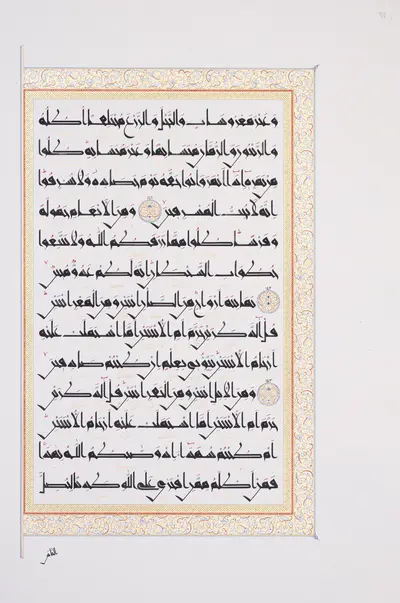 وغير معروشات والنخل والزرع مختلفا أكله
والزيتون والرمان متشابها وغير متشابه كلوا
من ثمره إذا أثمر وآتوا حقه يوم حصاده ولا تسرفوا
إنه لا يحب المسرفين ۝ ومن الأنعام حمولة
وفرشا كلوا مما رزقكم الله ولا تتبعوا
خطوات الشيطان إنه لكم عدو مبين
۝ ثمانية أزواج من الضأن اثنين ومن المعز اثنين
قل آلذكرين حرم أم الأنثيين أما اشتملت عليه
أرحام الأنثيين نبئوني بعلم إن كنتم صادقين
۝ ومن الإبل اثنين ومن البقر اثنين قل آلذكرين
حرم أم الأنثيين أما اشتملت عليه أرحام الأنثيين
أم كنتم شهداء إذ وصاكم الله بهذا
فمن أظلم ممن افترى على الله كذبا ليضل
الناس